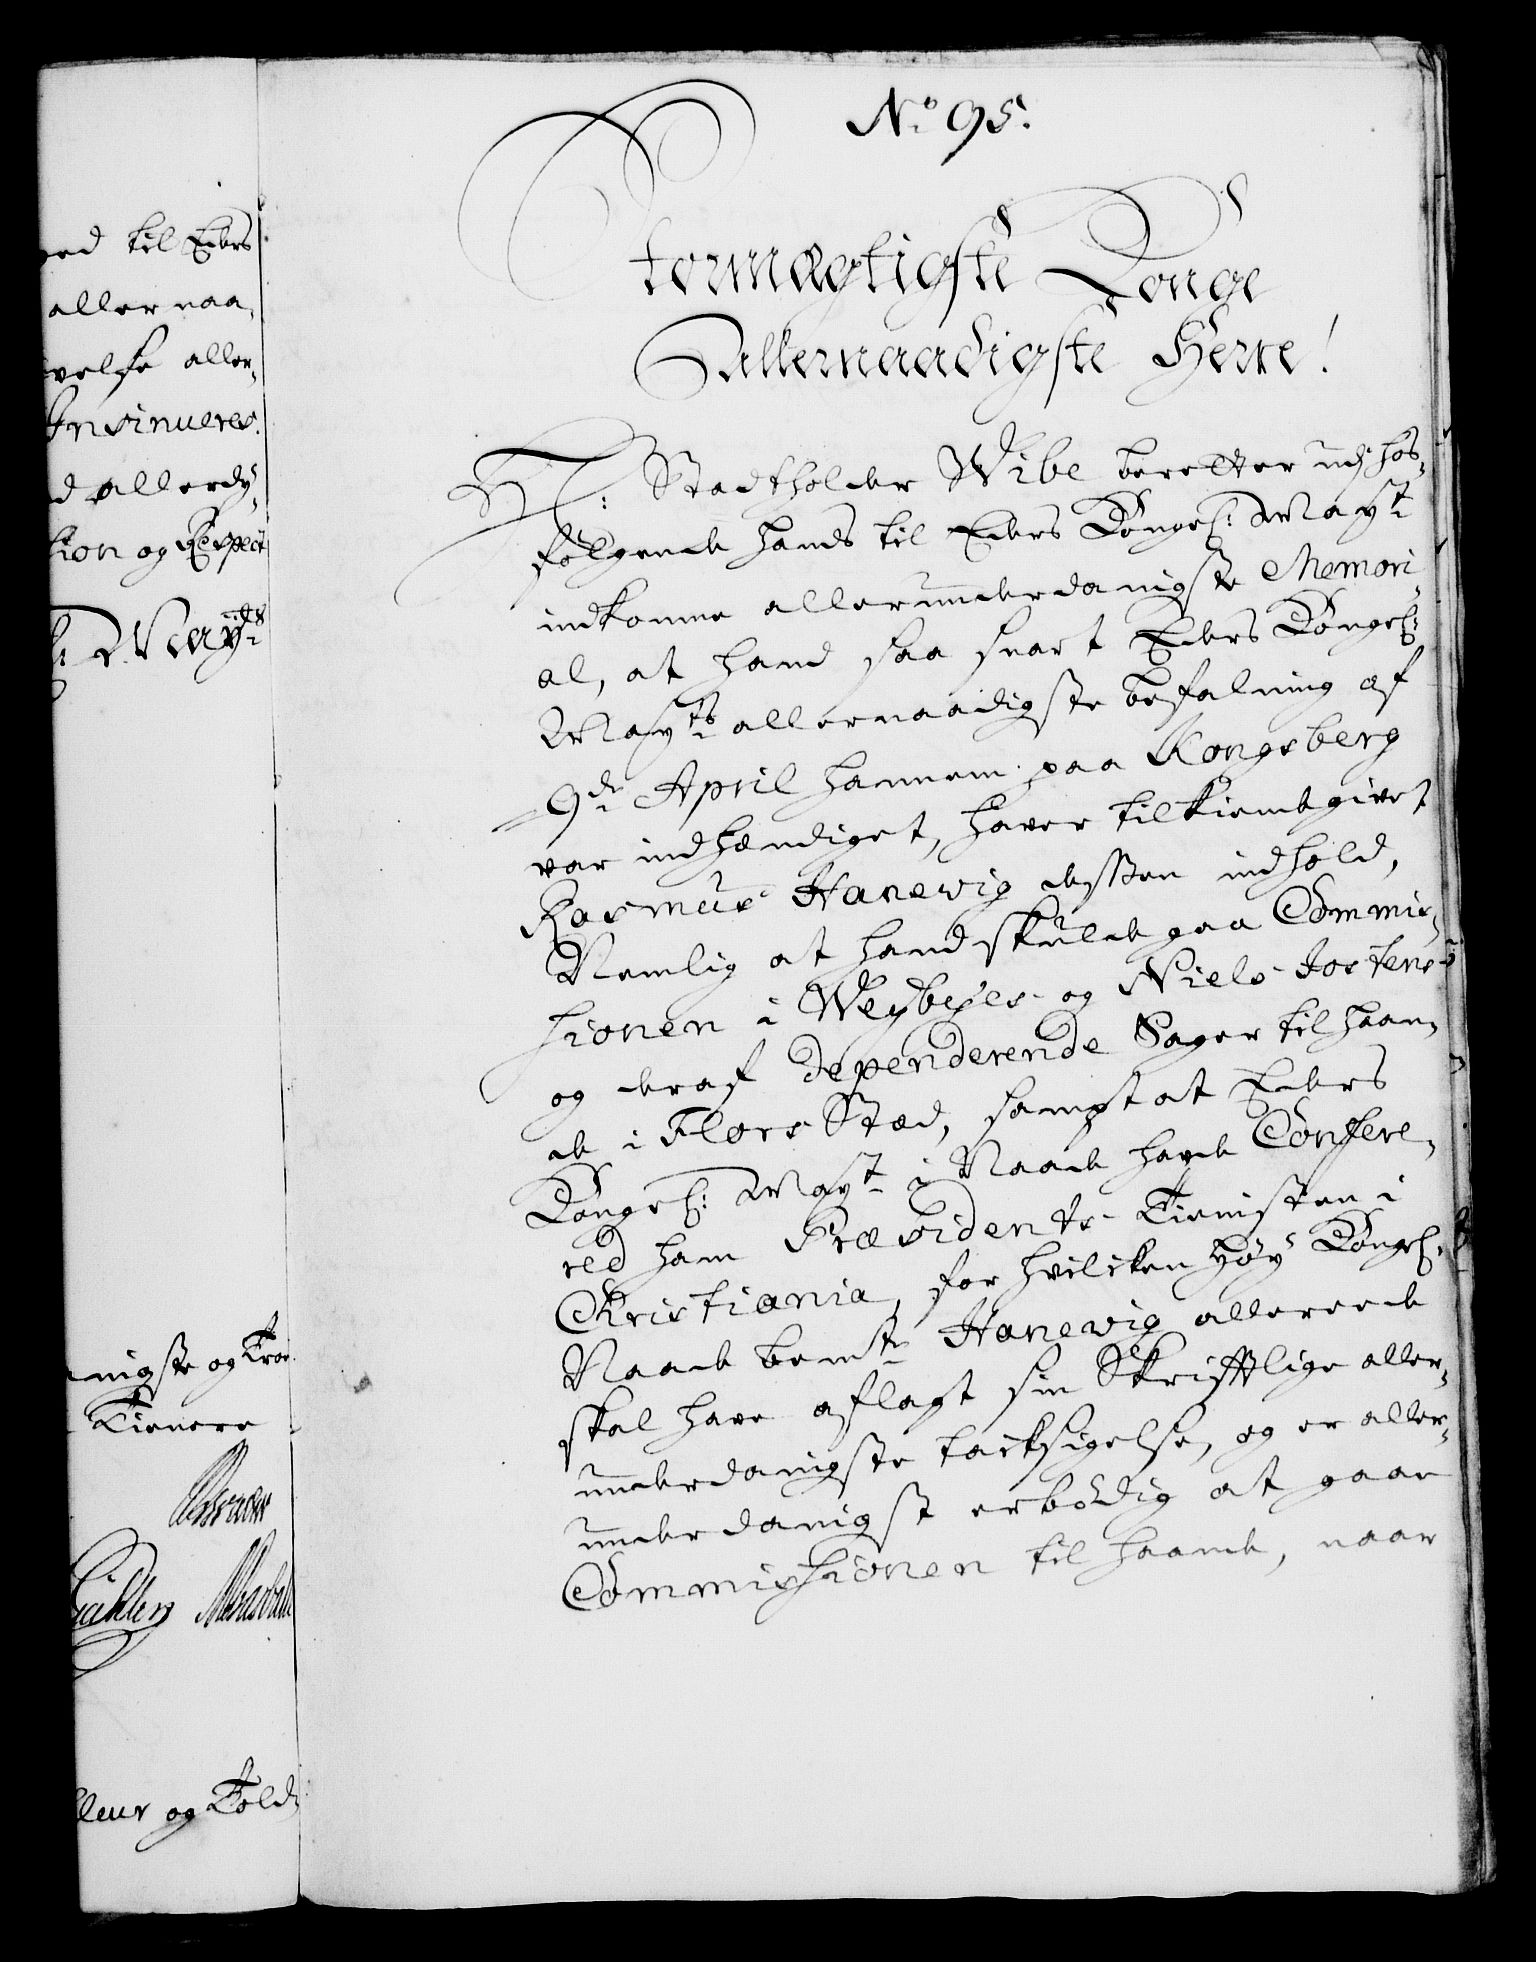 No 95.
Stormægtigste Konge
Allernaadigste Herre!
H: Stadtholder Wibe beretter udj hos¬
følgende hands til Eders Kongel: Mayt
indkomne allerunderdanigste Memori¬
al, at hand saa snart Eders Kongel:
Mayts allernaadigste befalning af
9de April hannem paa Kongsberg
var indhændiget, haver tilkiendegivet
Rasmus Hanewig dessen indhold,
Nemlig at hand skulde gaa Commis¬
sionen i Weybyes- og Niels Jostens-
og deraf dependerende Sager til haan¬
de i Flors Stæd, sampt at Eders
Kongel: Mayt i Naade havde Confere¬
red ham Præsidents-Tienisten i
Christiania, for hvilcken høy Kongel:
Naade bemte Hanewig allereede
skal have aflagt sin Skrifftlige aller¬
underdanigste tacksigelse, og er aller¬
underdanigst erbødig at gaae
Commissionen til haande, naar
ed til Eders
allernaa¬
velse aller¬
Insinueres.
d allerdy¬
tion og Respect
l: Mayts
nigste og Troe
Tienere
leur og Told